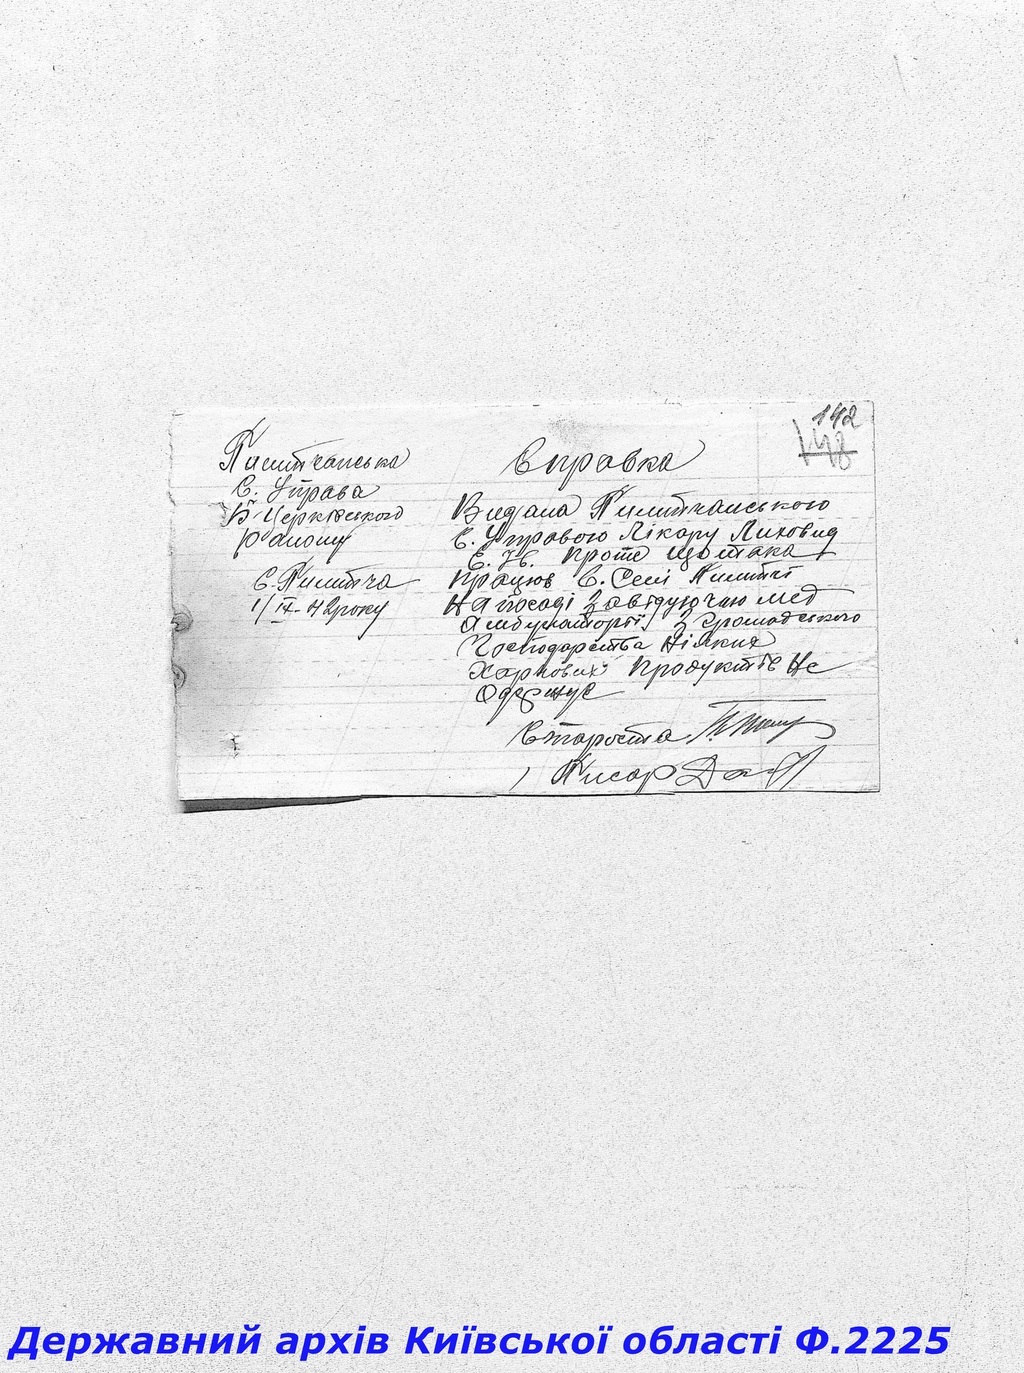 142
148
Пилипчанська
С. Управа
Б Церківського
району
С. Пилипча
1/IX-42 року
Справка
Видана Пилипчанською
С. Управою Лікару Лиховид
Є. Ів. проте що така
працює в. Селі Пилипчі
На посаді Завідуючаю мед
Амбулаторії, З громадського
Господарства ніяких
Харчових продуктів Не
Одержує
Староста
Писар
Державний архів Київської області Ф.2225